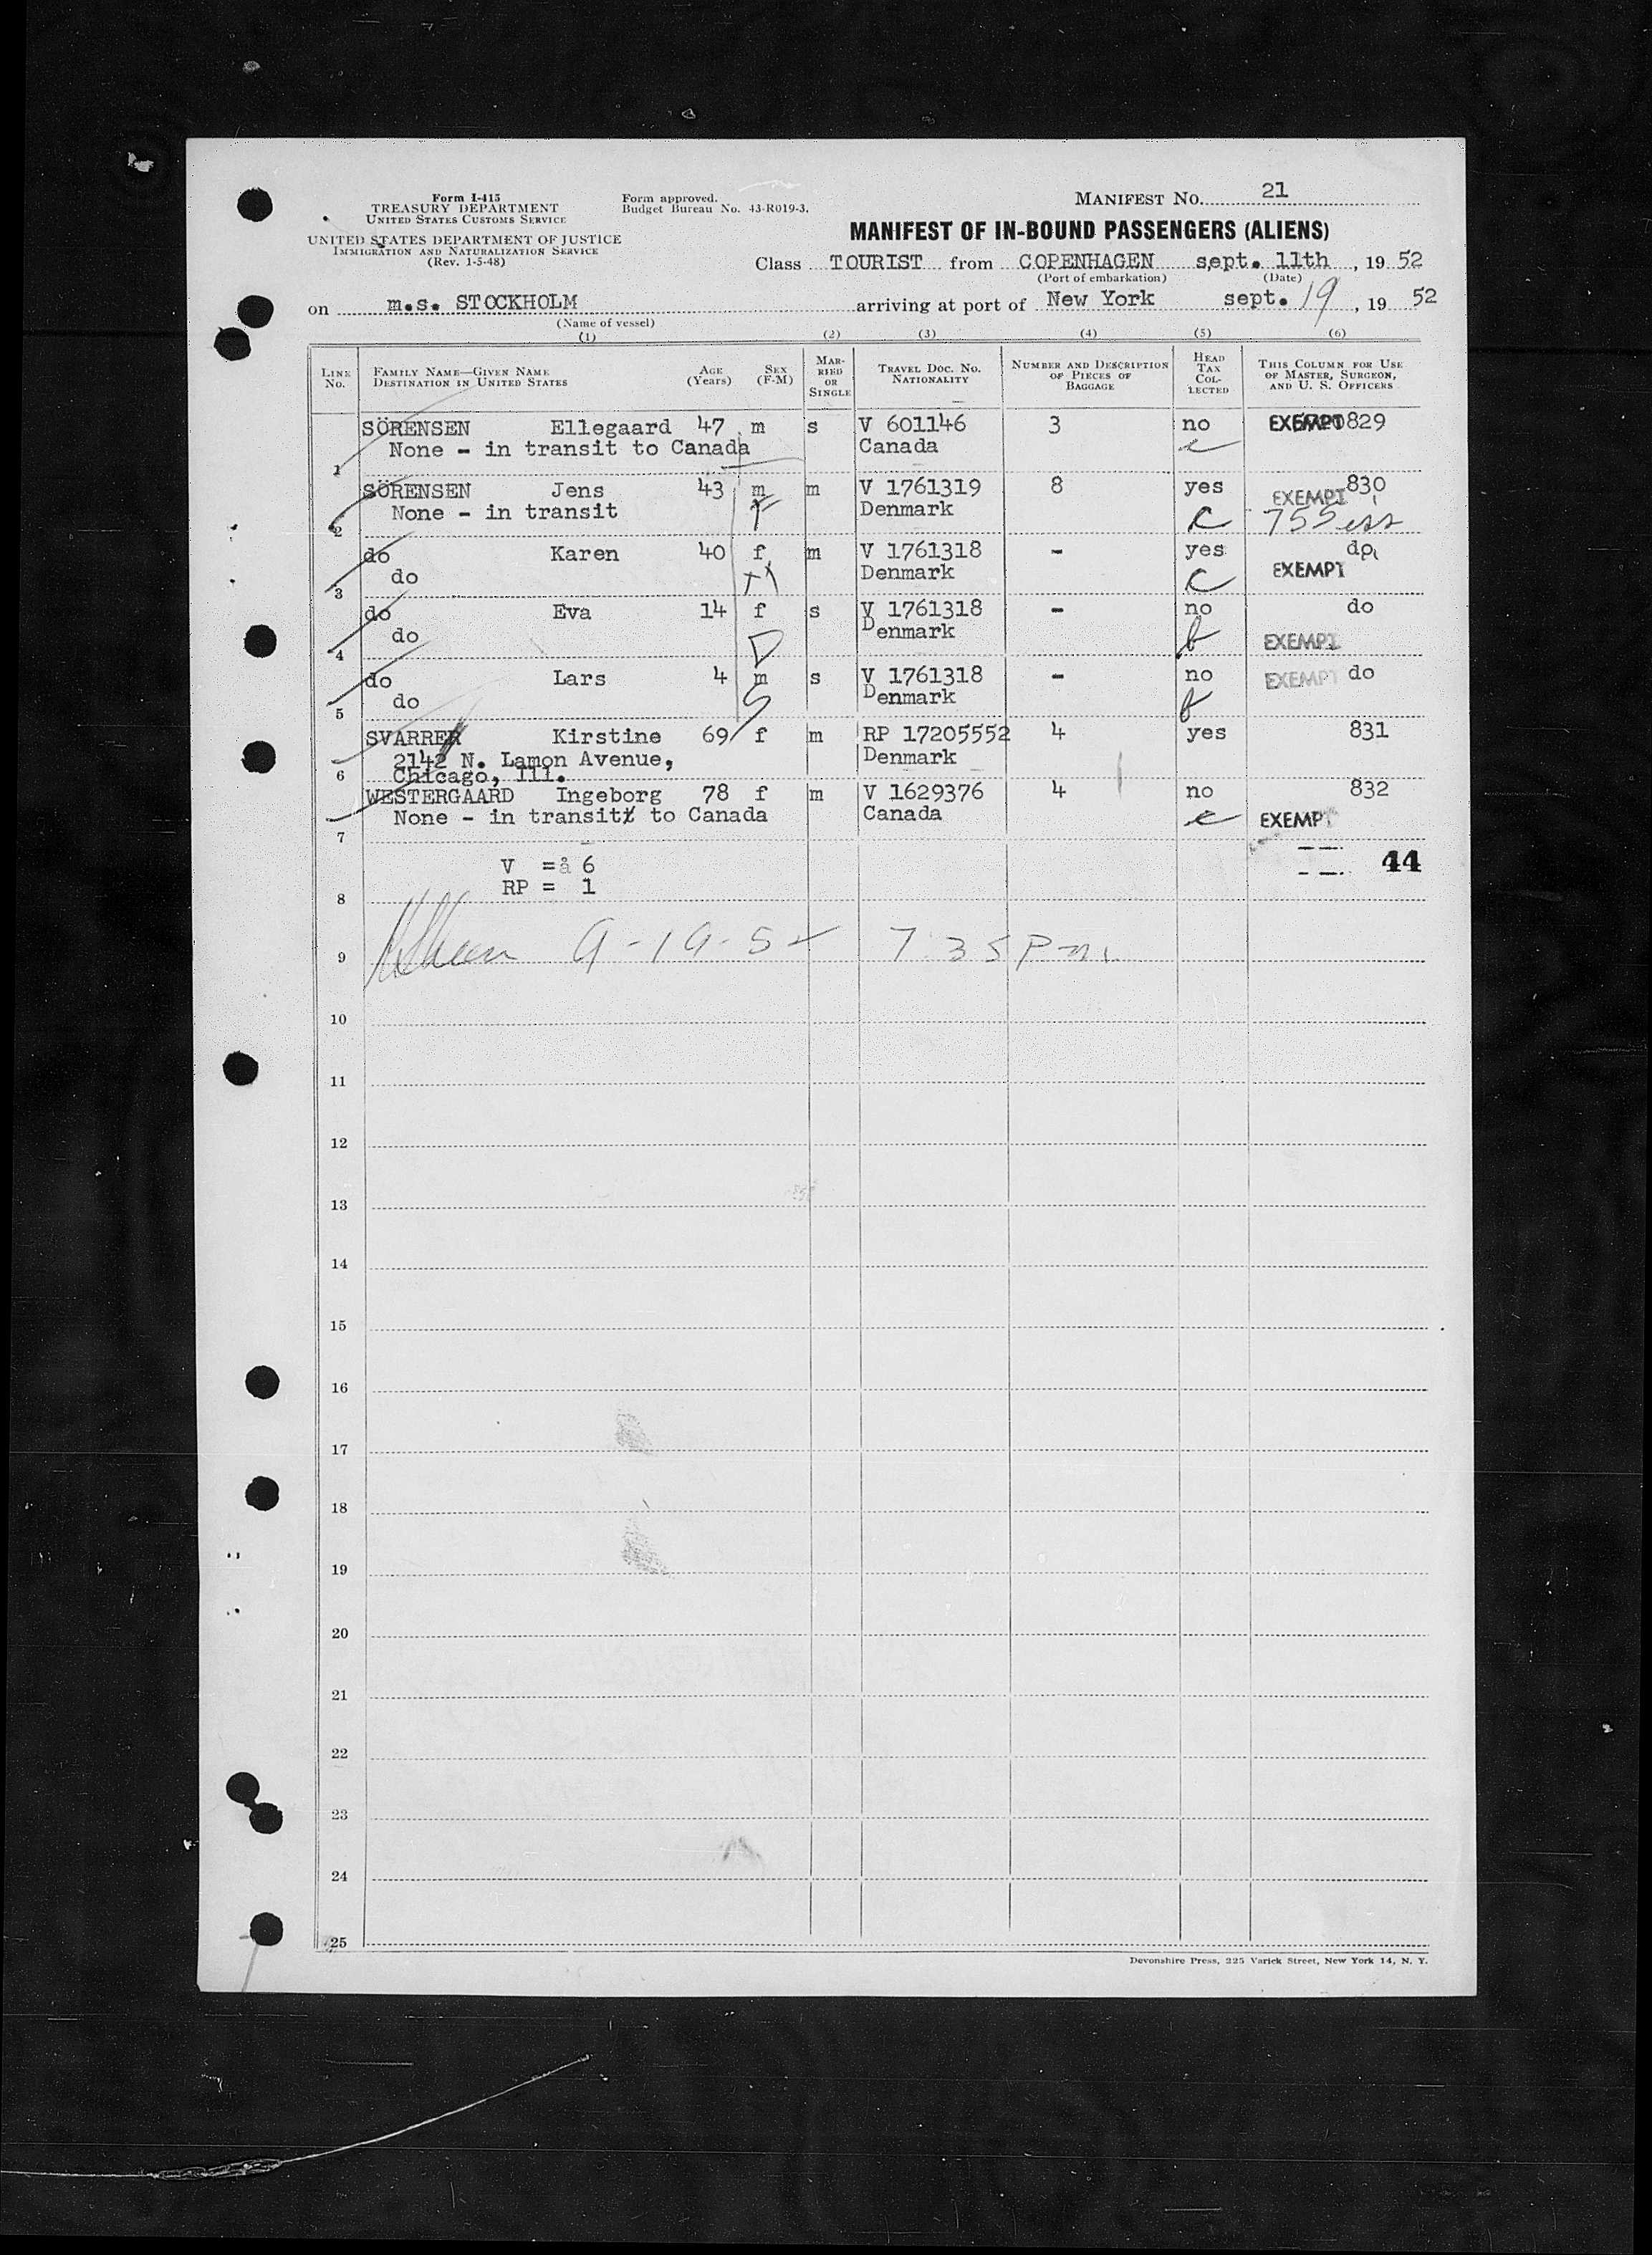 Form I-415
TREASURY DEPARTMENT
UNITED STATES CUSTOMS SERVICE
UNITED STATES DEPARTMENT OF JUSTICE
IMMIGRATION AND NATURALIZATION SERVICE
(Rev. 1-5-48)
Form approved.
Budget Bureau No. 43-R019-3.
MANIFEST No. 21
MANIFEST OF IN-BOUND PASSENGERS (ALIENS)
Class TOURIST from COPENHAGEN sept. 11th, 19 52
(Port of embarkation) (Date)
on m.s. STOCKHOLM arriving at port of New York sept. 19, 19 52
(Name of vessel)
(1) (2) (3) (4) (5) (6)
LINE No. FAMILY NAME—GIVEN NAME DESTINATION IN UNITED STATES AGE (Years) SEX (F-M) MARRIED OR SINGLE TRAVEL DOC. NO. NATIONALITY NUMBER AND DESCRIPTION OF PIECES OF BAGGAGE HEAD TAX COLLECTED THIS COLUMN FOR USE OF MASTER, SURGEON, AND U. S. OFFICERS
SÖRENSEN Ellegaard 47 m s V 601146 3 no EXEMPT 829
1 None - in transit to Canada Canada
SÖRENSEN Jens 43 m m V 1761319 8 yes EXEMPT 830
2 None - in transit Denmark
do Karen 40 f m V 1761318 - yes do
3 do Denmark EXEMPT
do Eva 14 f s V 1761318 - no do
4 do Denmark EXEMPT
do Lars 4 m s V 1761318 - no EXEMPT do
5 do Denmark
SVARRER Kirstine 69 f m RP 17205552 4 yes 831
2142 N. Lamon Avenue, Denmark
6 Chicago, Ill.
WESTERGAARD Ingeborg 78 f m V 1629376 4 no 832
7 None - in transit to Canada Canada EXEMPT
V = 6 44
RP = 1
8
9 9-19-52 7:35 Pm.
10
11
12
13
14
15
16
17
18
19
20
21
22
23
24
25
Devonshire Press, 225 Varick Street, New York 14, N. Y.